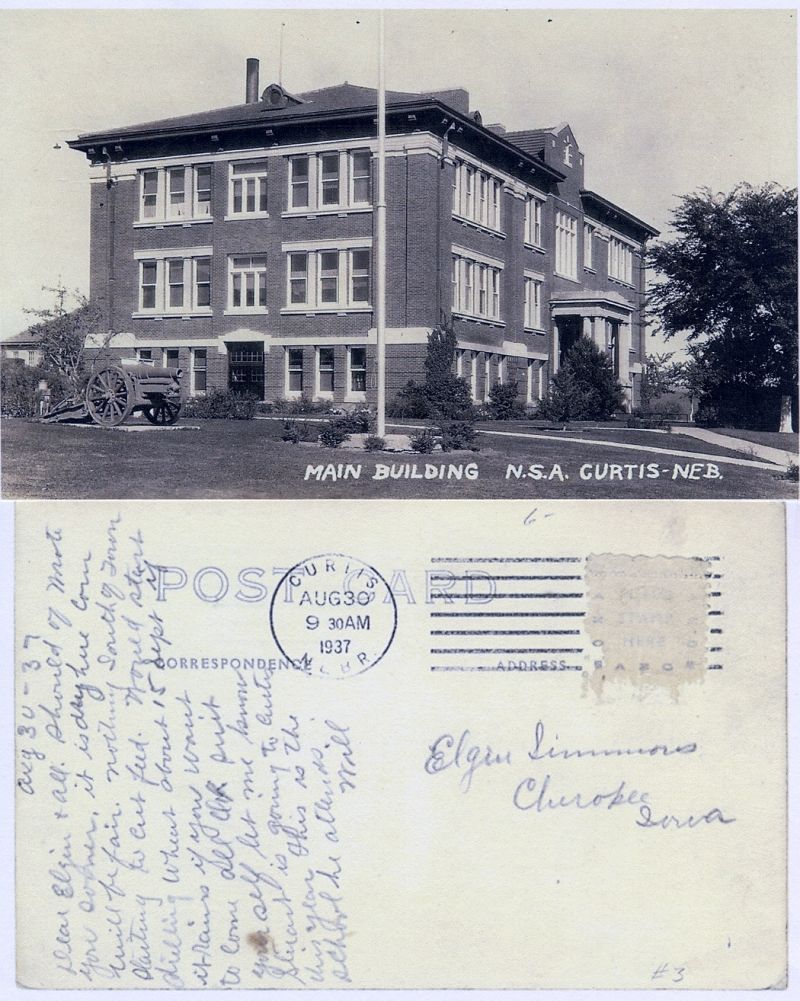 MAIN BUILDING N.S.A. CURTIS-NEB.
6-
POST CARD
CURTIS
AUG 30
9 30 AM
1937
NEBR.
CORRESPONDENCE
ADDRESS
PLACE
STAMP
HERE
Aug 30-37
Dear Elgin & all. Should of wrote
you sooner, it is dry here corn
will be fair. nothing South of Town
starting to cut feed. Would start
drilling wheat about 15 Sept if
it rains if you want
to come all suit
your self let me know
Stuart is going to Curtis
this year this is the
school he attends.
Will
Elgin Simmons
Cherokee
Iowa
#3